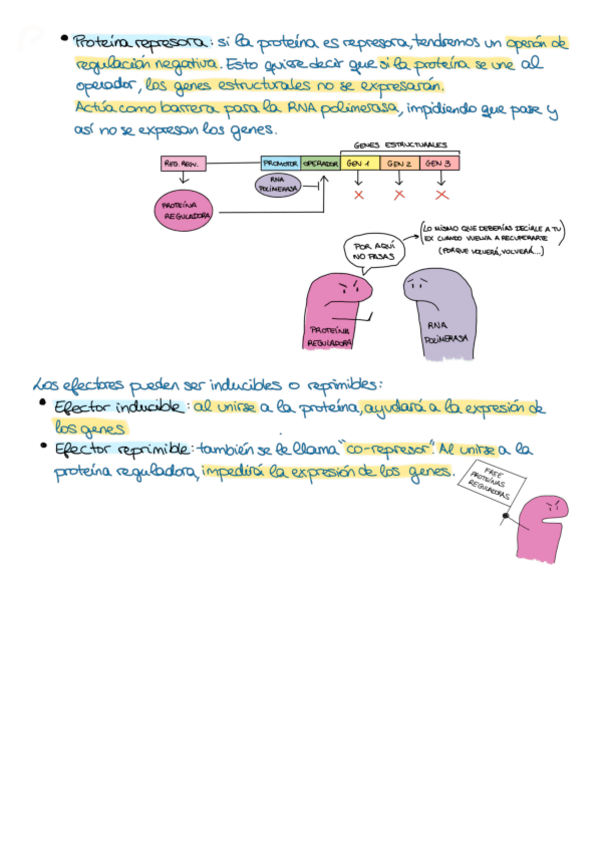 • Proteína represora: si la proteína es represora, tendremos un operón de
regulación negativa. Esto quiere decir que si la proteína se une al
operador, los genes estructurales no se expresarán.
Actúa como barrera para la RNA polimerasa, impidiendo que pase y
así no se expresan los genes.
GENES ESTRUCTURALES
PROMOTOR OPERADOR GEN 1 GEN 2 GEN 3
RNA
POLIMERASA
PROTEÍNA
REGULADORA
(LO MISMO QUE DEBERÍAS DECIRLE A TU
EX CUANDO VUELVA A RECUPERARTE
(PORQUE VOLVERÁ, VOLVERÁ...)
POR AQUÍ
NO PASAS
PROTEÍNA
REGULADORA
RNA
POLIMERASA
Los efectores pueden ser inducibles o reprimibles:
• Efector inducible: al unirse a la proteína, ayudará a la expresión de
los genes
• Efector reprimible: también se le llama "co-represor". Al unirse a la
proteína reguladora, impedirá la expresión de los genes.
FREE
PROTEÍNAS
REGULADORAS